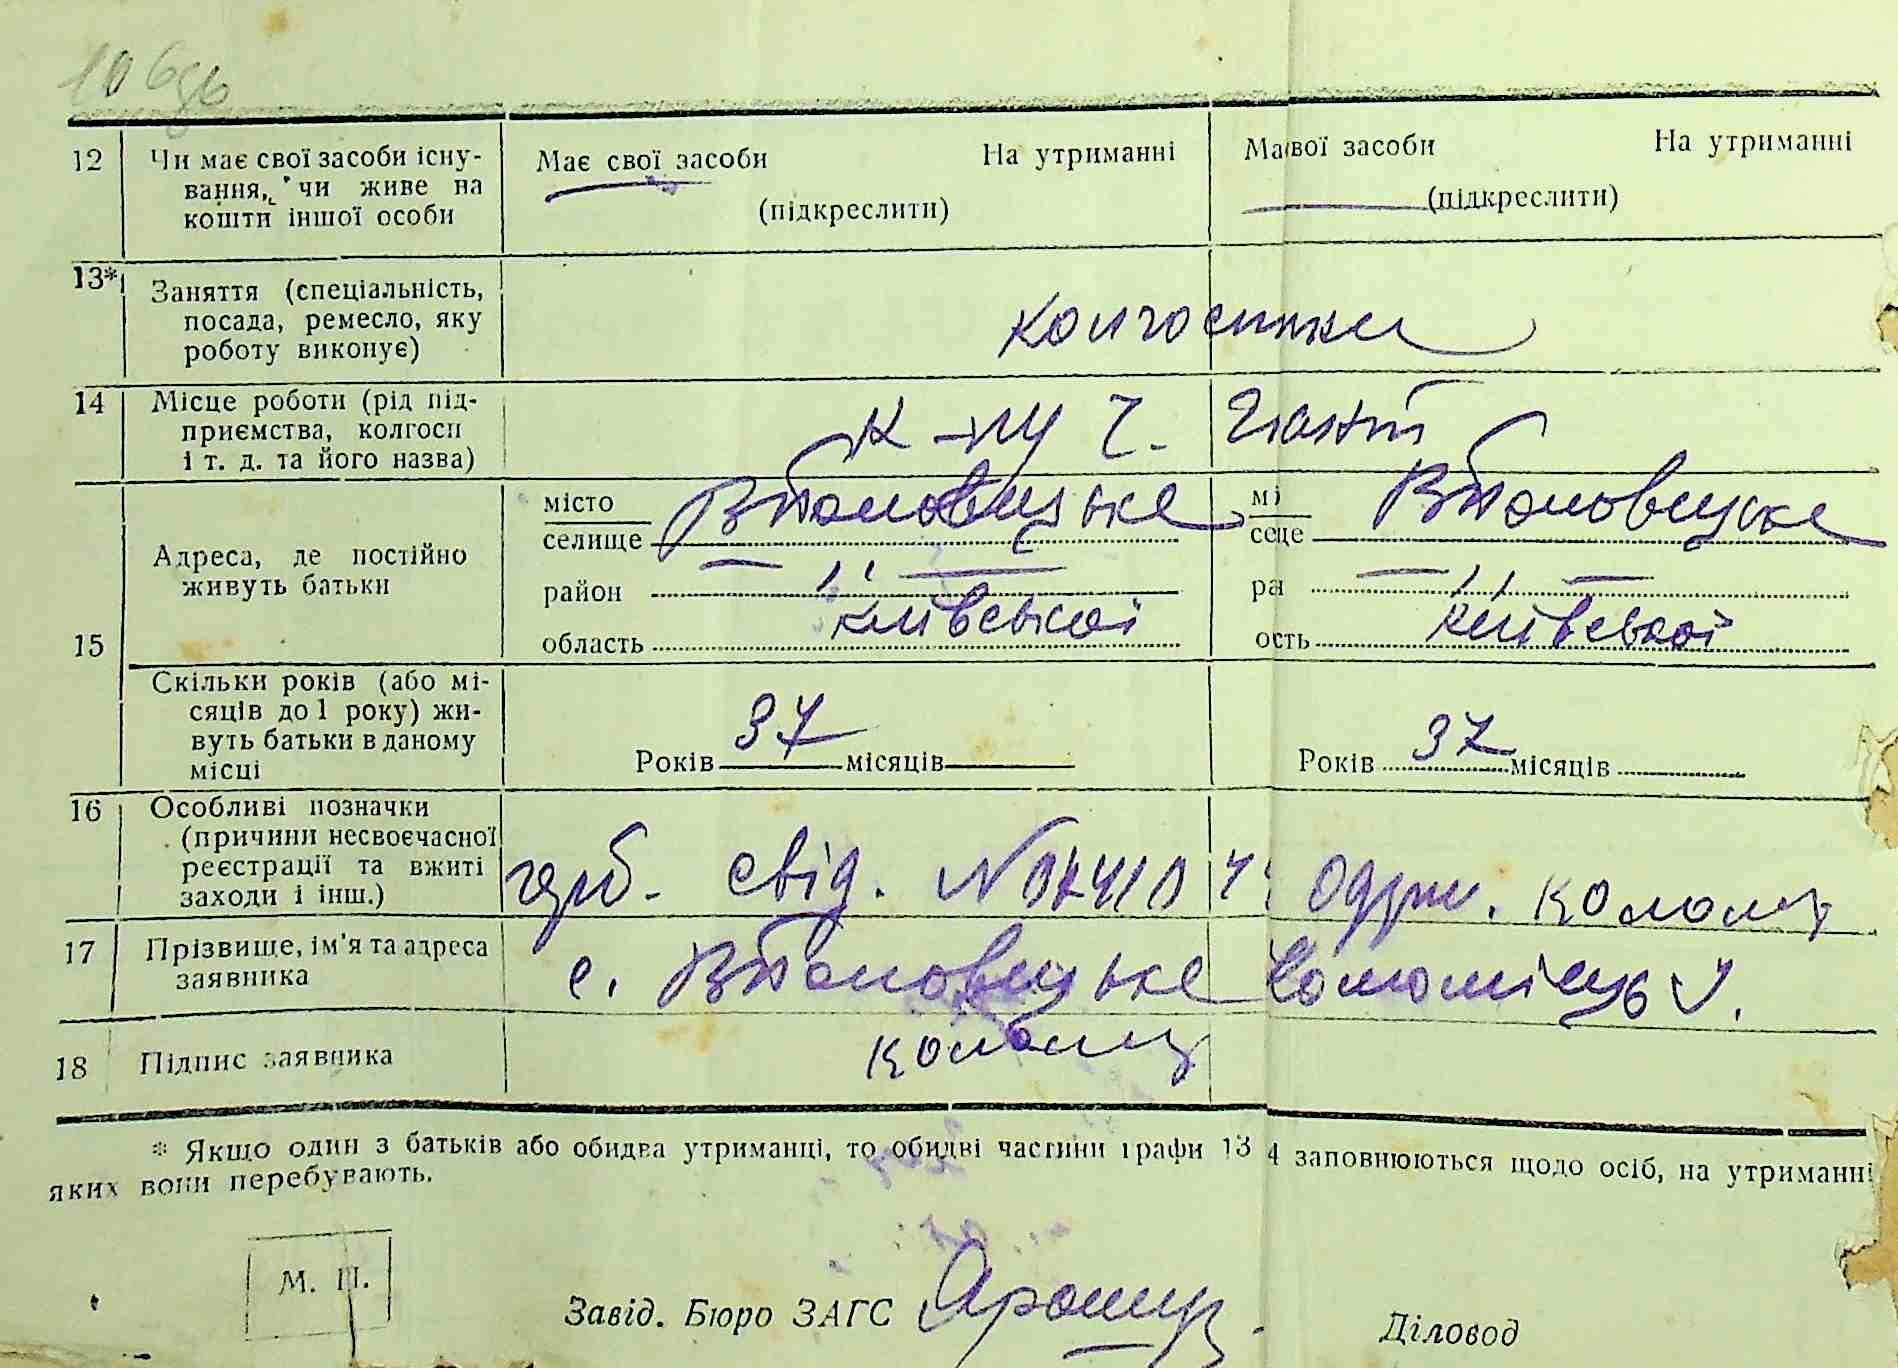 12 Чи має свої засоби існу-
вання, чи живе на
кошти іншої особи
Має свої засоби На утриманні
(підкреслити)
Ма вої засоби На утриманні
(підкреслити)
13* Заняття (спеціальність,
посада, ремесло, яку
роботу виконує)
колгоспники
14 Місце роботи (рід під-
приємства, колгосп
і т. д. та його назва)
к-пу Гігант
15 Адреса, де постійно
живуть батьки
місто
селище
район — 〃 —
область київської
мі
се ще
ра — 〃 —
ость київської
Скільки років (або мі-
сяців до 1 року) жи-
вуть батьки в даному
місці
Років 37 місяців
Років 37 місяців
16 Особливі позначки
(причини несвоєчасної
реєстрації та вжиті
заходи і інш.)
герб. свід. № одрж.
17 Прізвище, ім'я та адреса
заявника
с. Коломієць
18 Підпис заявника
* Якщо один з батьків або обидва утриманці, то обидві частини графи 13 4 заповнюються щодо осіб, на утриманні
яких вони перебувають.
М. П.
Завід. Бюро ЗАГС
Діловод